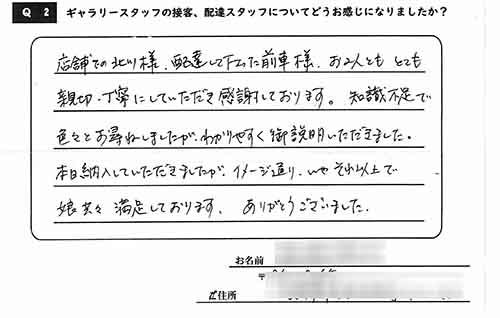 Q 2 ギャラリースタッフの接客、配達スタッフについてどうお感じになりましたか?
店舗での北川様、配達して下さった前車様、お2人とも とても
親切、丁寧にしていただき感謝しております。 知識不足で
色々とお尋ねしましたが、わかりやすく御説明いただきました。
本日納入していただきましたが、イメージ通り、いや それ以上で
娘共々 満足しております。 ありがとうございました。
お名前
〒
ご住所